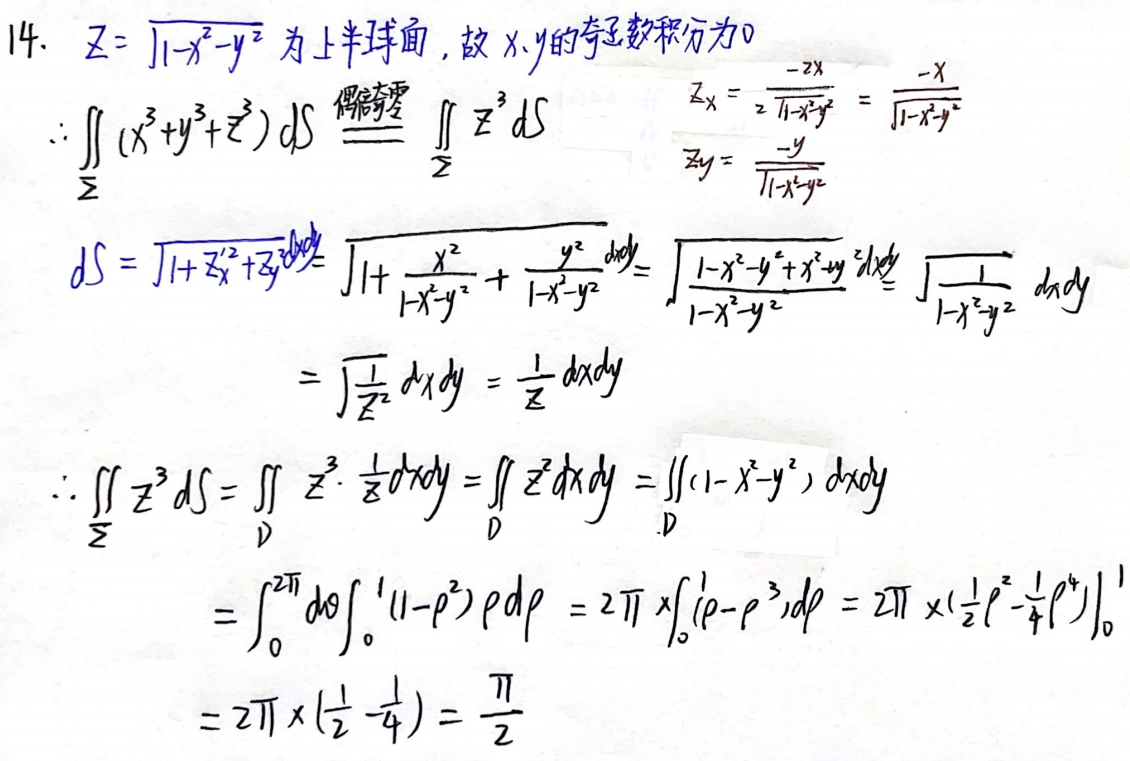 14. Z = √(1-x²-y²) 为上半球面，故 x、y的奇函数积分为0
∴ ∬_Σ (x³+y³+z³) dS ==偶倍奇零== ∬_Σ z³ dS
Zx = -2x / 2√(1-x²-y²) = -x / √(1-x²-y²)
Zy = -y / √(1-x²-y²)
dS = √(1+Zx'²+Zy²) dxdy = √(1 + x²/(1-x²-y²) + y²/(1-x²-y²)) dxdy = √((1-x²-y²+x²+y²)/(1-x²-y²)) dxdy = √(1/(1-x²-y²)) dxdy
= √(1/Z²) dxdy = 1/Z dxdy
∴ ∬_Σ z³ dS = ∬_D z³ · 1/z dxdy = ∬_D z² dxdy = ∬_D (1-x²-y²) dxdy
= ∫₀^2π dθ ∫₀¹ (1-ρ²) ρ dρ = 2π × ∫₀¹ (ρ-ρ³) dρ = 2π × (1/2 ρ² - 1/4 ρ⁴) |₀¹
= 2π × (1/2 - 1/4) = π/2